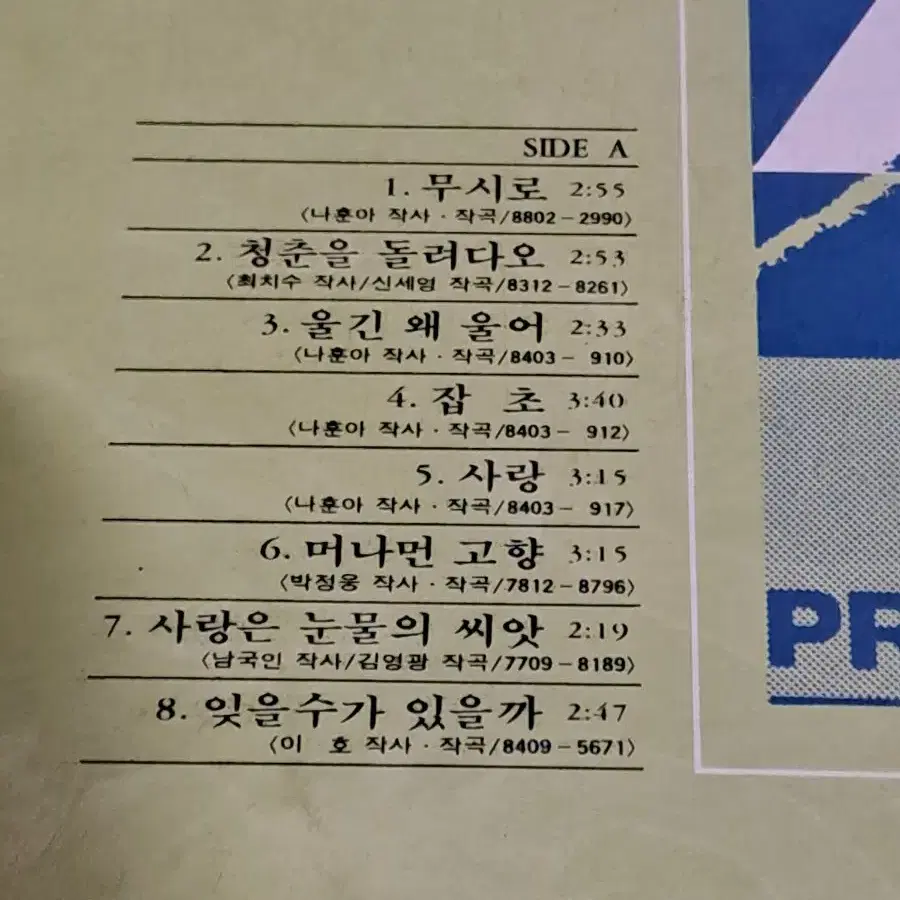 SIDE A
1. 무시로 2:55
〈나훈아 작사 · 작곡/8802-2990〉
2. 청춘을 돌려다오 2:53
〈최치수 작사/신세영 작곡/8312-8261〉
3. 울긴 왜 울어 2:33
〈나훈아 작사 · 작곡/8403- 910〉
4. 잡 초 3:40
〈나훈아 작사 · 작곡/8403- 912〉
5. 사랑 3:15
〈나훈아 작사 · 작곡/8403- 917〉
6. 머나먼 고향 3:15
〈박정웅 작사 · 작곡/7812-8796〉
7. 사랑은 눈물의 씨앗 2:19
〈남국인 작사/김영광 작곡/7709-8189〉
8. 잊을수가 있을까 2:47
〈이 호 작사 · 작곡/8409-5671〉
PR